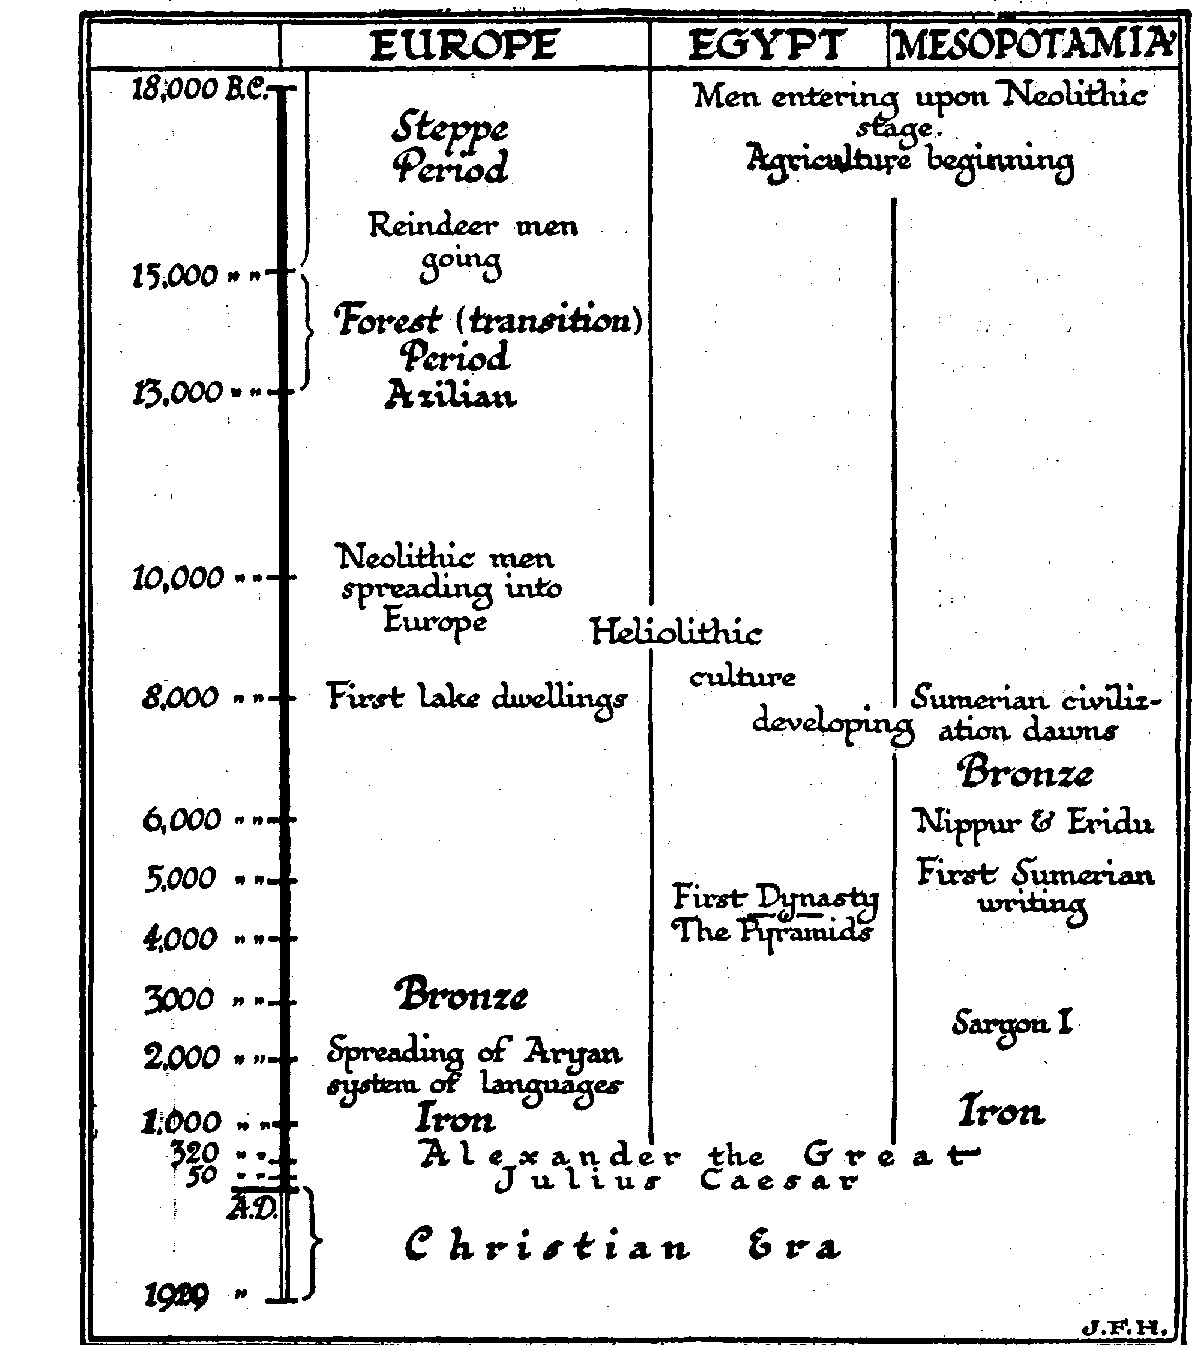 EUROPE EGYPT MESOPOTAMIA
18,000 B.C.
Men entering upon Neolithic
stage.
Agriculture beginning
Steppe
Period
Reindeer men
going
15,000 " "
Forest (transition)
Period
13,000 " "
Azilian
Neolithic men
10,000 " "
spreading into
Europe
Heliolithic
culture
developing
8,000 " "
First lake dwellings
Sumerian civiliz-
ation dawns
Bronze
6,000 " "
Nippur & Eridu
5,000 " "
First Sumerian
writing
First Dynasty
The Pyramids
4,000 " "
3000 " "
Bronze
Sargon I
2,000 " "
Spreading of Aryan
system of languages
1,000 " "
Iron
Iron
320 " "
Alexander the Great
50 " "
Julius Caesar
A.D.
Christian Era
"
J.F.H.